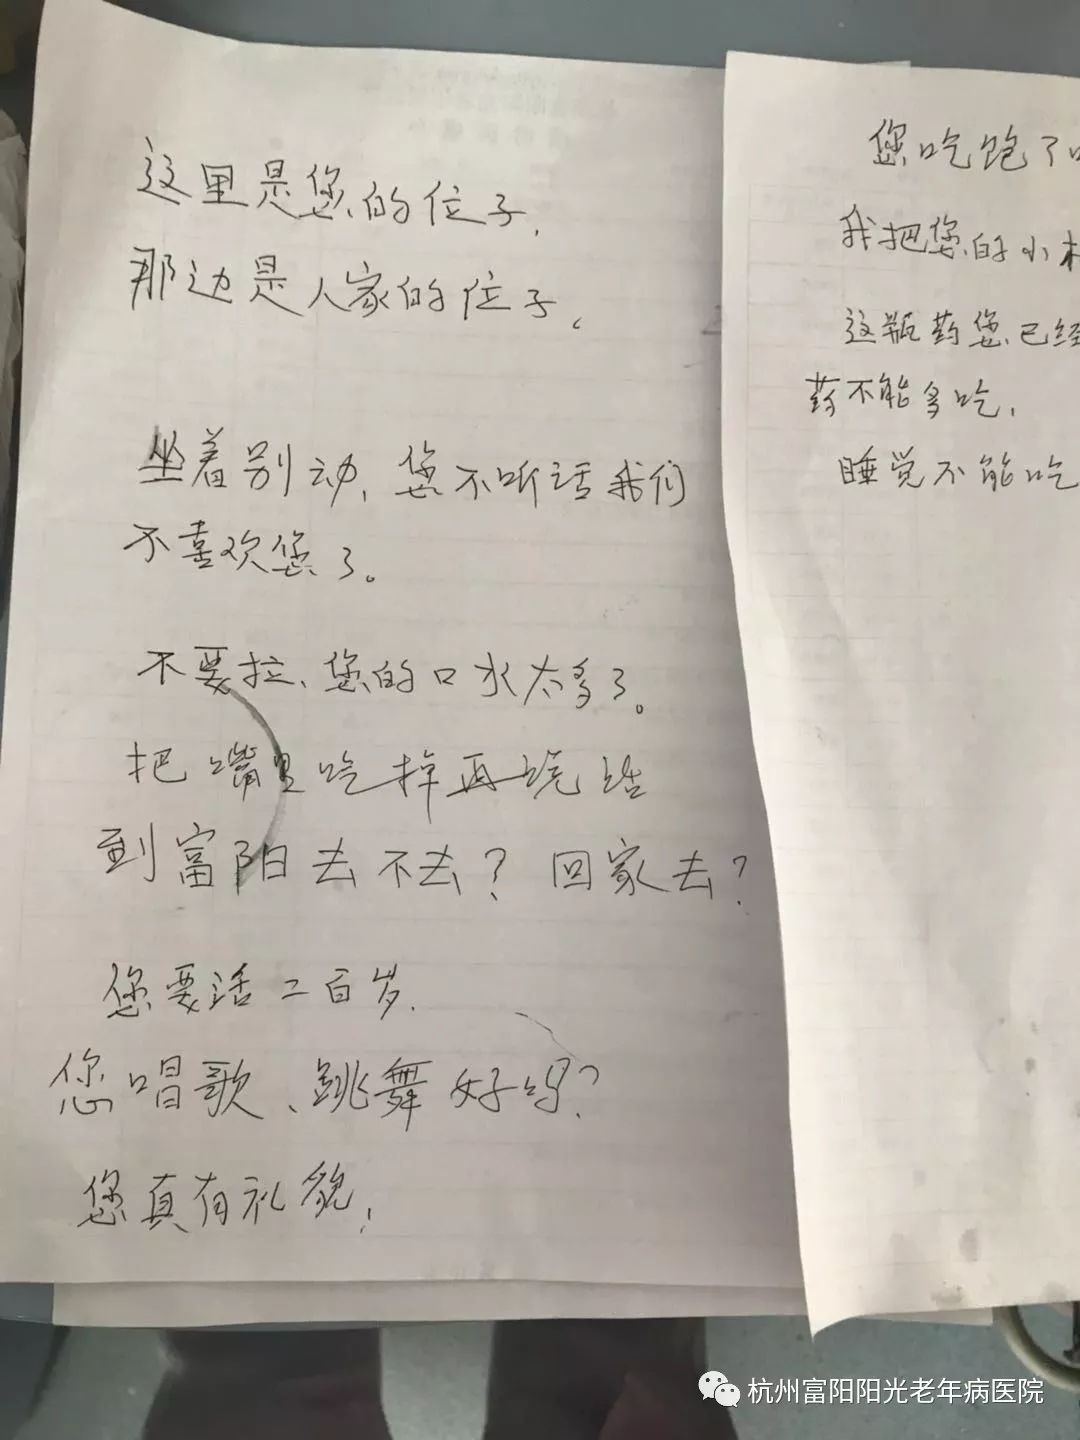 这里是您的位子,
那边是人家的位子。
坐着别动,您不听话我们
不喜欢您了。
不要拉、您的口水太多了。
把嘴里吃掉再说话
到富阳去不去？回家去？
您要活二百岁.
您唱歌、跳舞好吗?
您真有礼貌,
您吃饱了
我把您的小
这瓶药您已经
药不能多吃,
睡觉不能吃
杭州富阳阳光老年病医院